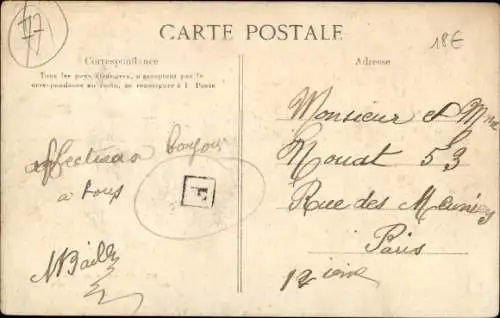 77
CARTE POSTALE
18€
Correspondance
Adresse
Tous les pays étrangers, n'acceptent pas la
correspondance au recto, se renseigner à la Poste
Monsieur et Mme
Rouat 53
Rue des Meuniers
Paris
12 ième
affectueux bonjour
à tous
E
MBailly